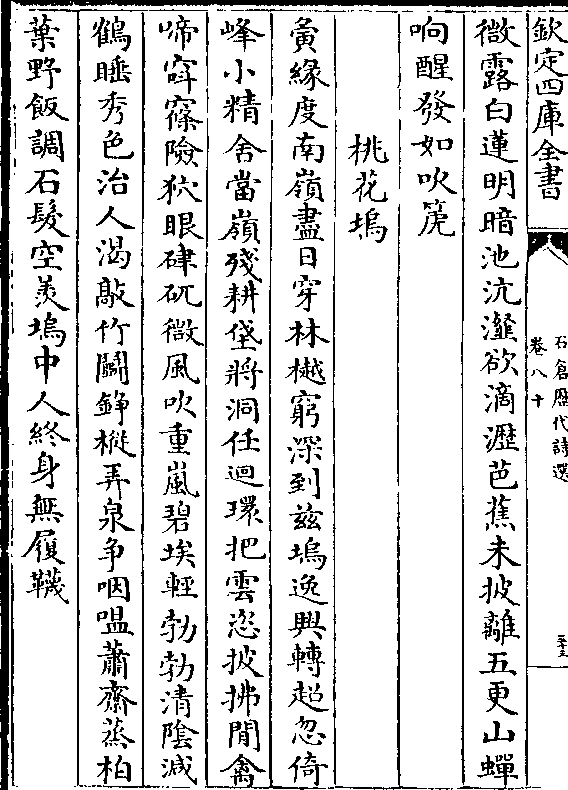 欽定四庫全書
石倉歴代詩選
卷八十
微露白蓮明暗池沆瀣欲滴瀝芭蕉未披離五更山蟬
响醒發如吹箎
桃花塢
夤緣度南嶺盡日穿林樾窮深到兹塢逸興轉超忽倚
峰小精舍當嶺殘耕垡將洞任迴環把雲恣披拂閒禽
啼窅窱險狖眼硉矹微風吹重嵐碧埃輕勃勃清陰減
鶴睡秀色治人渴敲竹鬭錚摐弄泉争咽嗢蕭齋蒸柏
葉野飯調石髮空羨塢中人終身無履韈